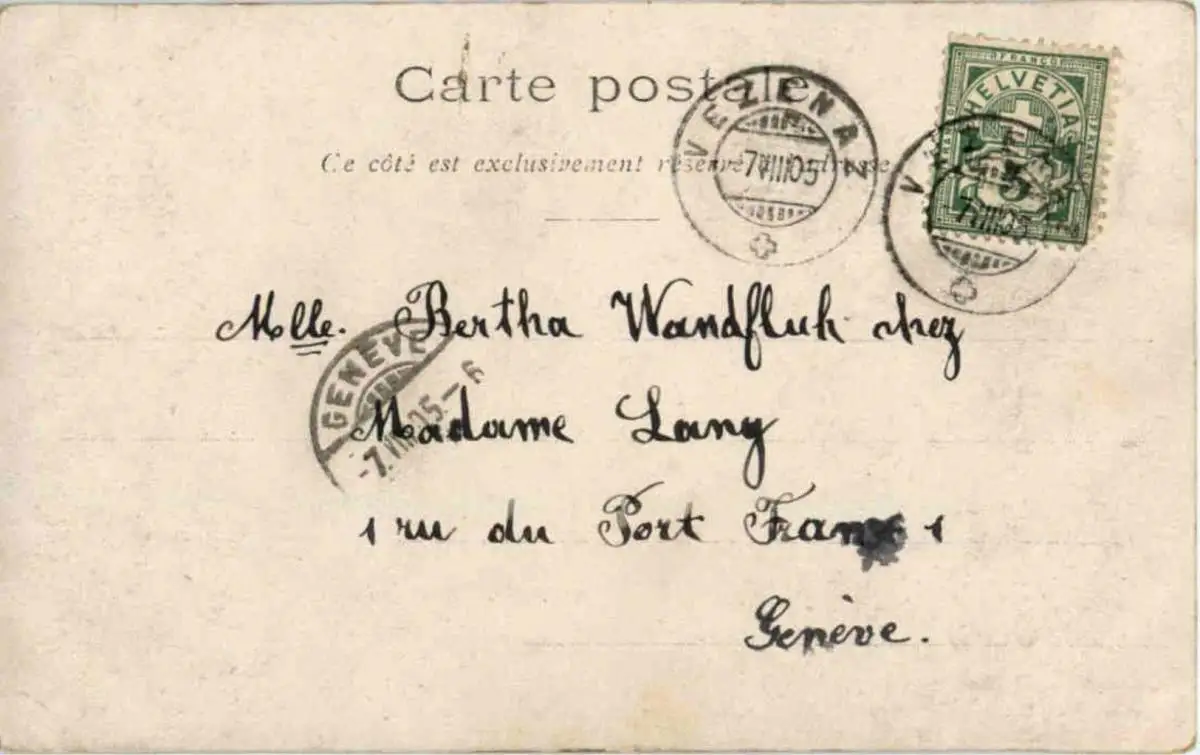 Carte postale
Ce côté est exclusivement réservé à l'adresse
VEZENAZ
7 VIII 05
FRANCO
HELVETIA
5
7 VIII 05
Mlle. Bertha Wandfluh chez
GENÈVE
-7. VIII 05.-6
Madame Lany
1 ru du Port Franc 1
Genève.